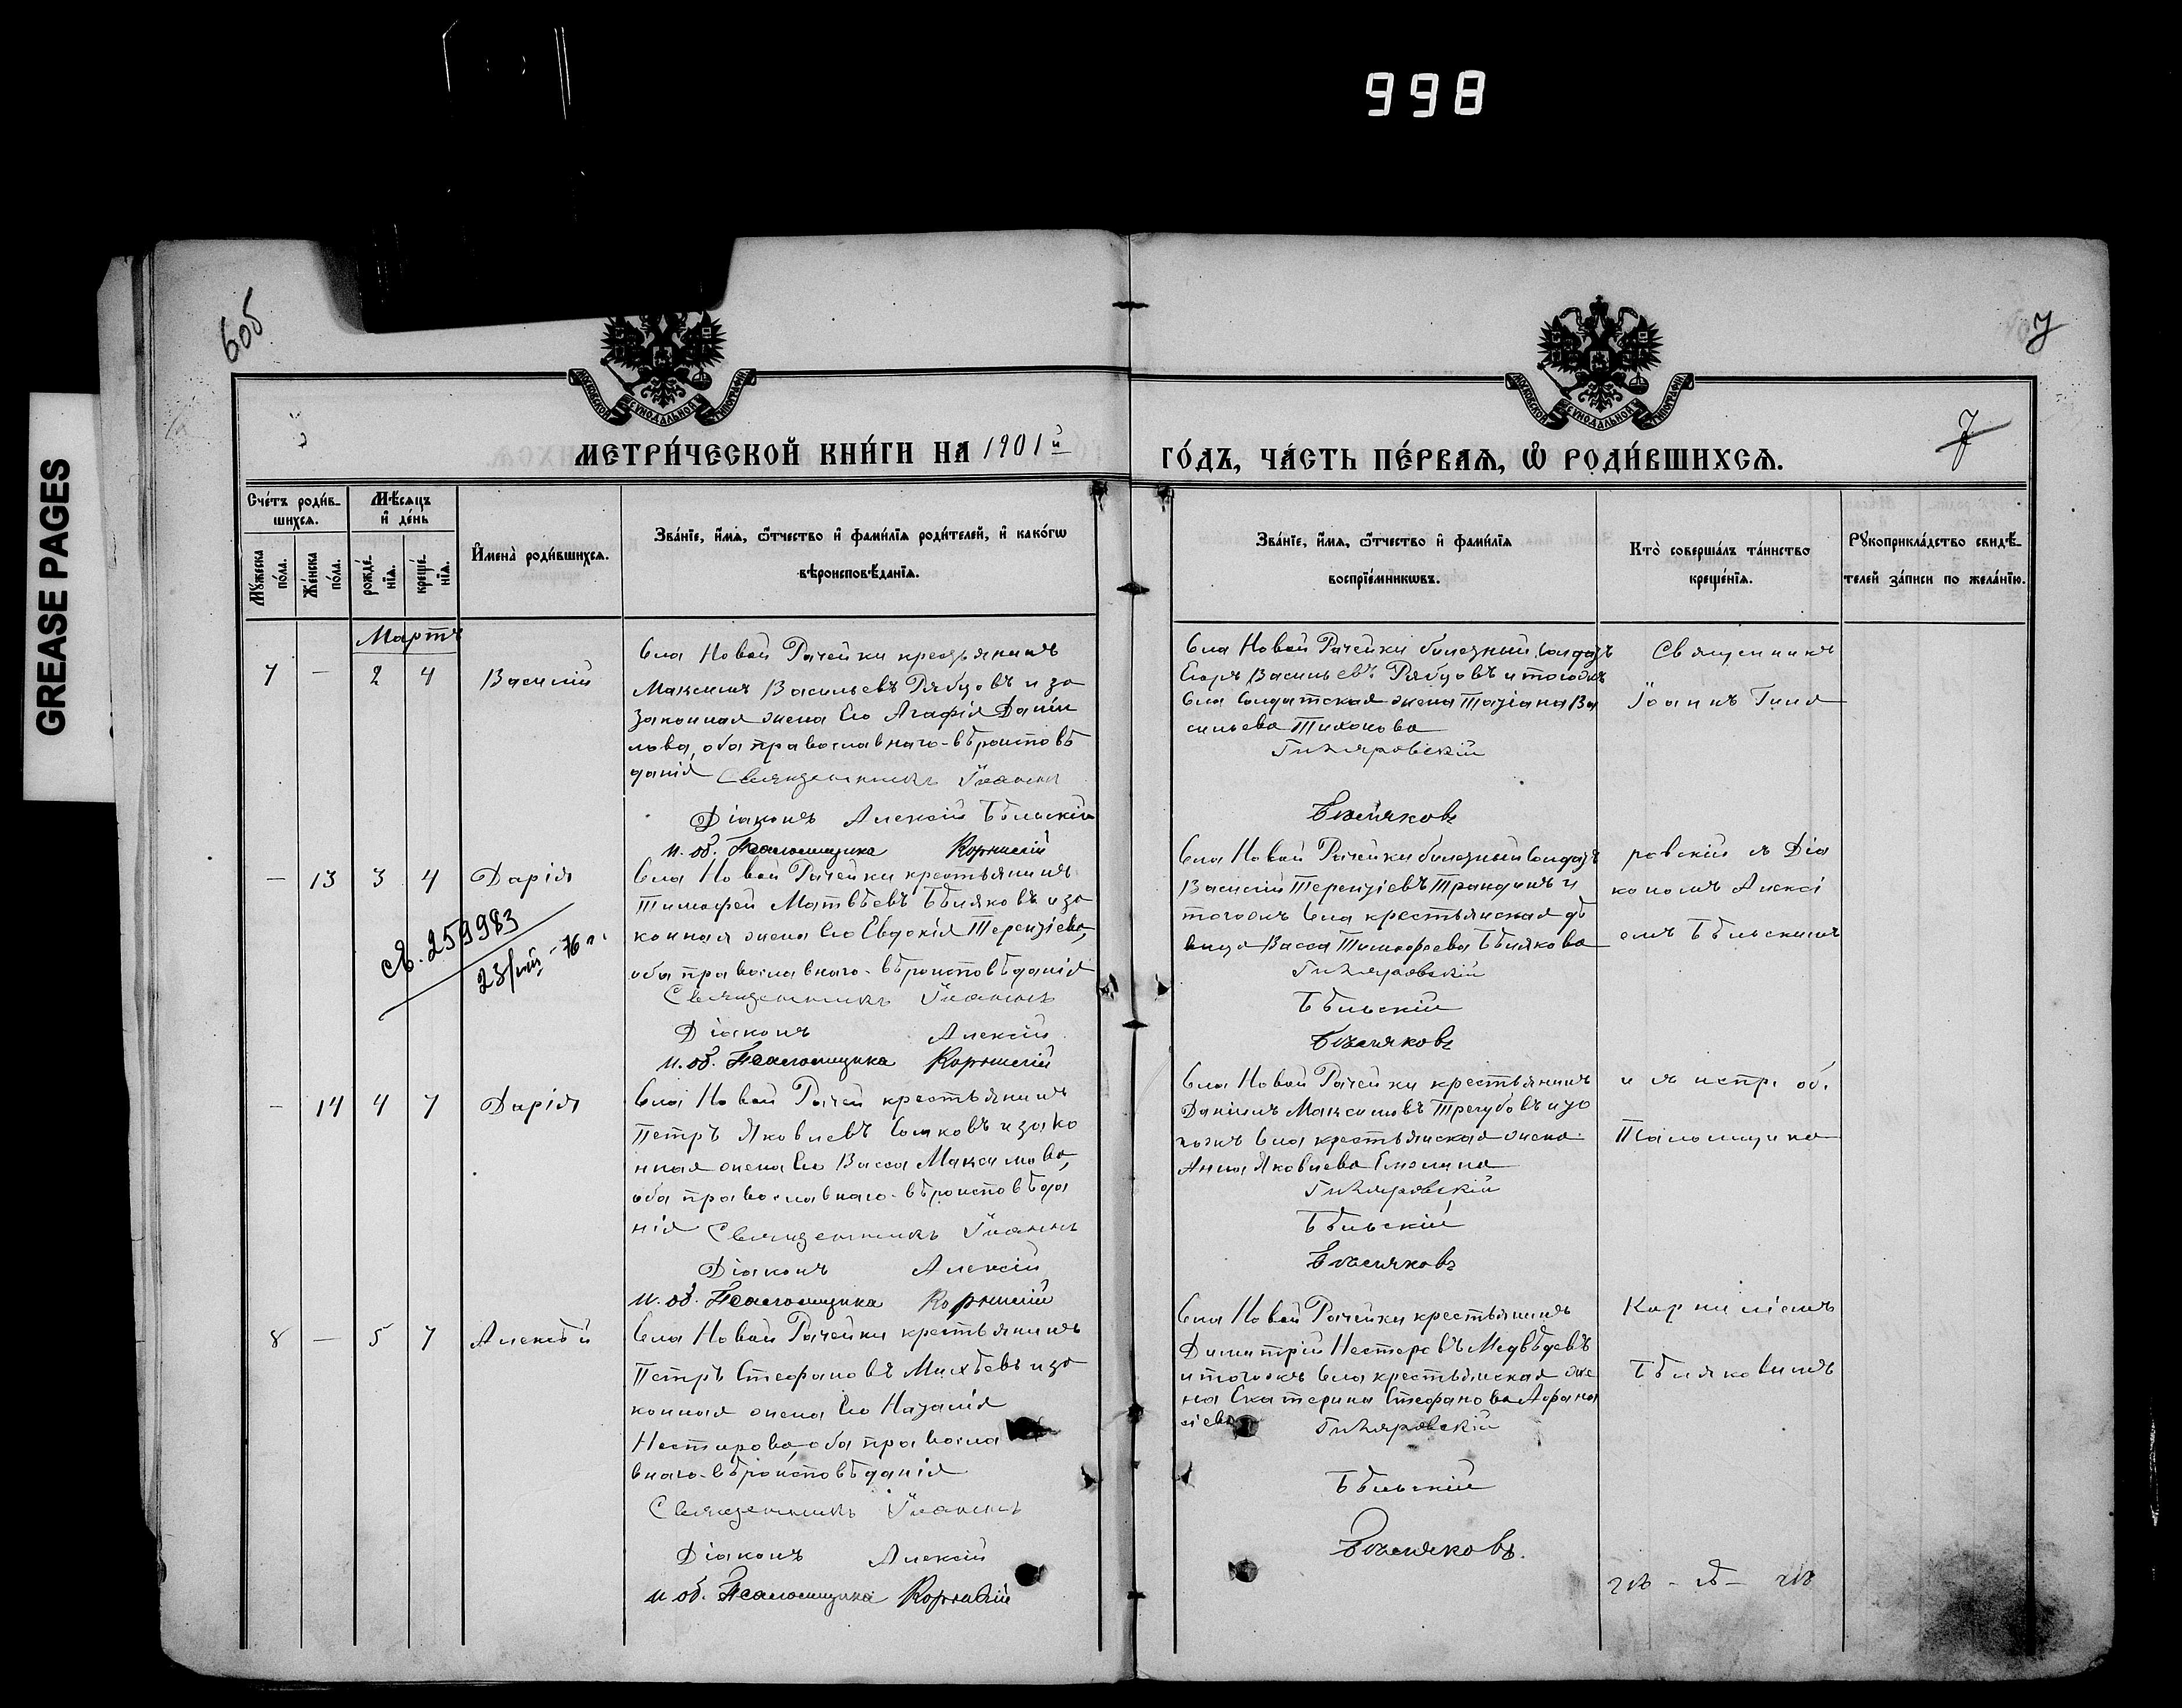 998
GREASE PAGES
6об
7
7
МОСКОВСКОЙ СѴНОДАЛЬНОЙ ТИПОГРАФІИ
МОСКОВСКОЙ СѴНОДАЛЬНОЙ ТИПОГРАФІИ
МЕТРИ́ЧЕСКОЙ КНИ́ГИ НА 1901й
ГО́ДЪ, ЧА́СТЬ ПЕ́РВАѦ, Ѿ РОДИ́ВШИХСѦ.
Сче́тъ роди́в-
шихсѧ.
Мꙋжеска по́ла.
Же́нска по́ла.
Мѣ́сѧцъ
и҆ де́нь
рожде́-
нїѧ.
креще́-
нїѧ.
И҆мена̀ роди́вшихсѧ.
Зва́нїе, и҆́мѧ, ѻ҆́тчество и҆ фами́лїѧ роди́телей, и҆ како́гѡ
вѣроисповѣ́данїѧ.
Зва́нїе, и҆́мѧ, ѻ҆́тчество и҆ фами́лїѧ
воспрїе́мникѡвъ.
Кто̀ соверша́лъ та́инство
креще́нїѧ.
Рꙋкоприкла́дство свидѣ́-
телей за́писи по жела́нїю.
Мартъ
7 — 2 4 Василій
Села Новой Рачейки крестьянинъ
Максимъ Васильевъ Рябцовъ и за
законная жена Его Агафія Даніи
лова, оба православнаго-вѣроисповѣ
данія Священникъ Іоаннъ
Діаконъ Алексій Бѣльскій
и. об. Псаломщика Корнилій
Села Новой Рачейки Солдатъ
Егоръ Васильевъ Рябцовъ и тогожъ
Села Солдатская жена Татіана Ва
сильева Тихонова
Гиляровскій
Бѣляковъ
Священникъ
Іоаннъ Гиля
— 13 3 4 Дарія
св. 259983
23/ 76 г.
Села Новой Рачейки крестьянинъ
Тимофей Матвѣевъ Бѣляковъ и за
конная жена Его Евдокія Терентіева,
оба православнаго-вѣроисповѣданія
Священникъ Іоаннъ
Діаконъ Алексій
и. об. Псаломщика Корнилій
Села Новой Рачейки Солдатъ
Василій Терентіевъ и
тогожъ Села крестьянская дѣ
вица Васса Тимофеева Бѣлякова
Гиляровскій
Бѣльскій
Бѣляковъ
ровскій съ Діа
кономъ Алексі
емъ Бѣльскимъ
— 14 4 7 Дарія
Села Новой Рачей крестьянинъ
Петръ Яковлевъ и зако
нная жена Его Васса Максимова,
оба православнаго-вѣроисповѣда
нія Священникъ Іоаннъ
Діаконъ Алексій
и. об. Псаломщика Корнилій
Села Новой Рачейки крестьянинъ
Даніилъ Максимовъ Трегубовъ и то
гожъ Села крестьянская жена
Анна Яковлева
Гиляровскій
Бѣльскій
Бѣляковъ
и съ испр. об.
Псаломщика
8 — 5 7 Алексѣй
Села Новой Рачейки крестьянинъ
Петръ Стефановъ Михѣевъ и за
конная жена Его Наталія
Нестирова, оба правосла
внаго-вѣроисповѣданія
Священникъ Іоаннъ
Діаконъ Алексій
и об. Псаломщика Корнилій
Села Новой Рачейки крестьянинъ
Димитрій Нестеровъ Медвѣдевъ
и тогожъ Села крестьянская же
на Екатерина Стефанова Афана
сіева
Гиляровскій
Бѣльскій
Бѣляковъ.
Корниліемъ
Бѣляковымъ